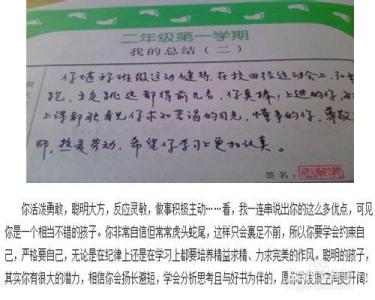 二年级第一学期
我的总结（二）
你堪称班级运动健将，在校田径运动会上，
跑、立定跳远都得前几名，你真棒！上进的你，每
上课都能看见你求知若渴的目光，懂事的你，尊敬
师，热爱劳动，希望你学习上更加认真。
签名：
你活泼勇敢，聪明大方，反应灵敏，做事积极主动……看，我一连串说出你的这么多优点，可见
你是一个相当不错的孩子。你非常自信但常常虎头蛇尾，这样只会裹足不前，所以你要学会约束自
己，严格要自己，无论是在纪律上还是在学习上都要培养精益求精、力求完美的作风。聪明的孩子，
其实你有很大的潜力，相信你会扬长避短，学会分析思考且与好书为伴的，愿你的发展空间更开阔！